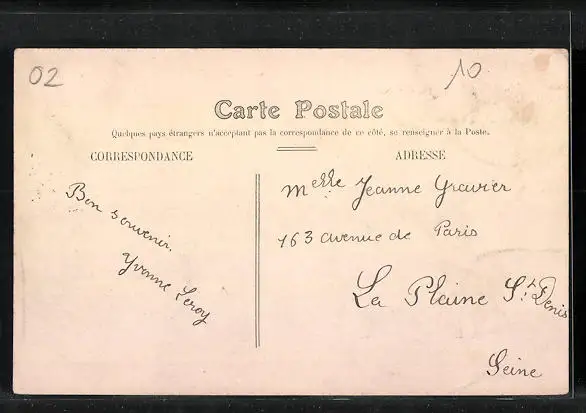 02
10
Carte Postale
Quelques pays étrangers n'acceptant pas la correspondance de ce côté, se renseigner à la Poste.
CORRESPONDANCE
ADRESSE
Bon souvenir.
Yvonne Leroy
Melle Jeanne Gravier
163 avenue de Paris
La Plaine St Denis
Seine